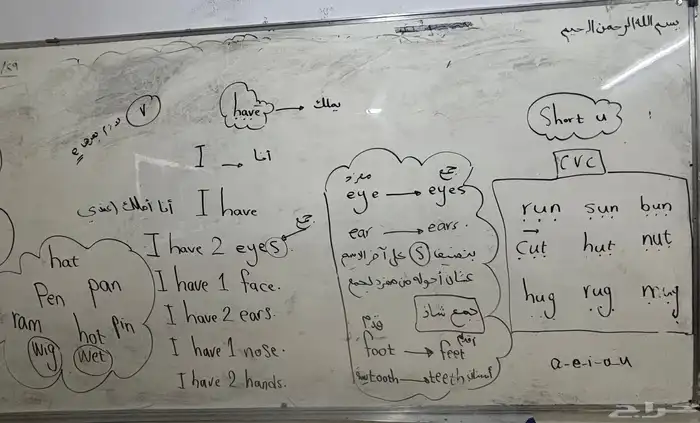 بسم الله الرحمن الرحيم
have → يملك
I → أنا
I have أنا أملك / عندي
I have 2 eyes. جمع
I have 1 face.
I have 2 ears.
I have 1 nose.
I have 2 hands.
hat
pen pan
ram hot pin
wig wet
مفرد جمع
eye → eyes
ear → ears.
بنضيف S على آخر الاسم
عشان أحوله من مفرد لجمع
جمع شاذ
قدم
foot → feet
tooth → teeth أسنان
Short u
CVC
run sun bun
cut hut nut
hug rug mug
a-e-i-o-u
حراج